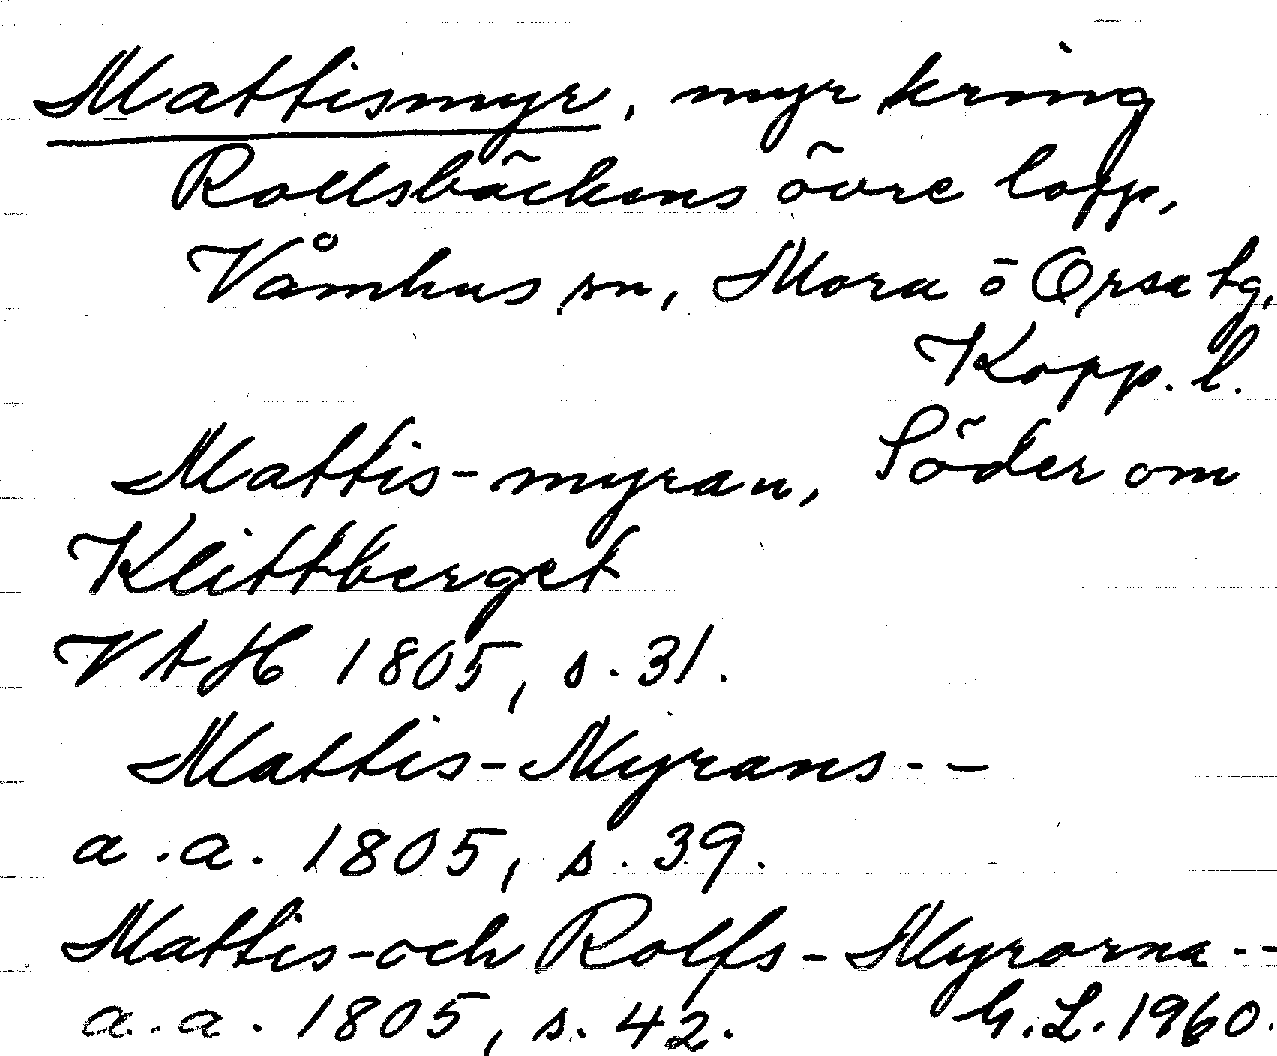 Mattismyr, myr kring
Rollsbäckens övre lopp,
Våmhus sn, Mora o Orsa tg,
Kopp. l.
Mattis-myran, Söder om
Klittberget
VAH 1805, s. 31.
Mattis-Myrans--
a.a. 1805, s. 39.
Mattis-och Rolfs-Myrorna--
a.a. 1805, s. 42. G.L. 1960.